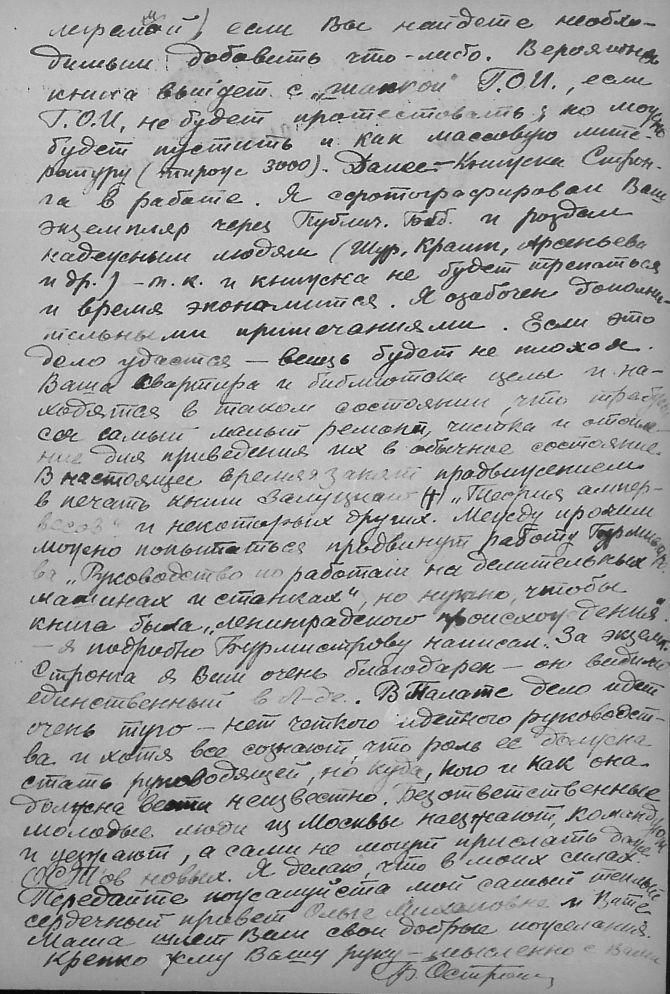 если Вы найдете необхо-
димым добавить что-либо. Вероятно
книга выйдет с „шапкой" Г.О.И., если
Г.О.И. не будет протестовать; но можно
будет пустить и как массовую лите-
ратуру (тираж 3000). Далее – Книжка Строн-
га в работе. Я сфотографировал Ваш
экземпляр через Публич. Библ. и роздал
надежным людям (Шур, Крамп, Арсеньева
и др.) – т.к. и книжка не будет трепаться
и время экономится. Я озабочен дополни-
тельными примечаниями. Если это
дело удастся – вещь будет не плохая.
Ваша квартира и библиотека целы и на-
ходятся в таком состоянии, что требует
ся самый малый ремонт, чистка и отопле-
ние для приведения их в обычное состояние.
В настоящее время я занят продвижением
в печать книги „Теория ампер-
весов" и некоторых других. Между прочим
можно попытаться продвинуть работу Бурмистро
ва „Руководство по работам на делительных
машинах и станках", но нужно, чтобы
книга была „ленинградского происхождения".
– я подробно Бурмистрову написал. За экземп.
Стронга я Вам очень благодарен – он видимо
единственный в Л-де. В Палате дело идет
очень туго – нет четкого идейного руководст-
ва и хотя все сознают, что роль ее должна
стать руководящей, но куда, кого и как она
должна вести неизвестно. Безответственные
молодые люди из Москвы наезжают, командуют
и уезжают, а сами не могут прислать даже
ОСТ'ов новых. Я делаю что в моих силах.
Передайте пожалуйста мой самый теплый
сердечный привет Ольге Михайловне и Вите
Маша шлет Вам свои добрые пожелания.
Крепко жму Вашу руку – мысленно с Вами